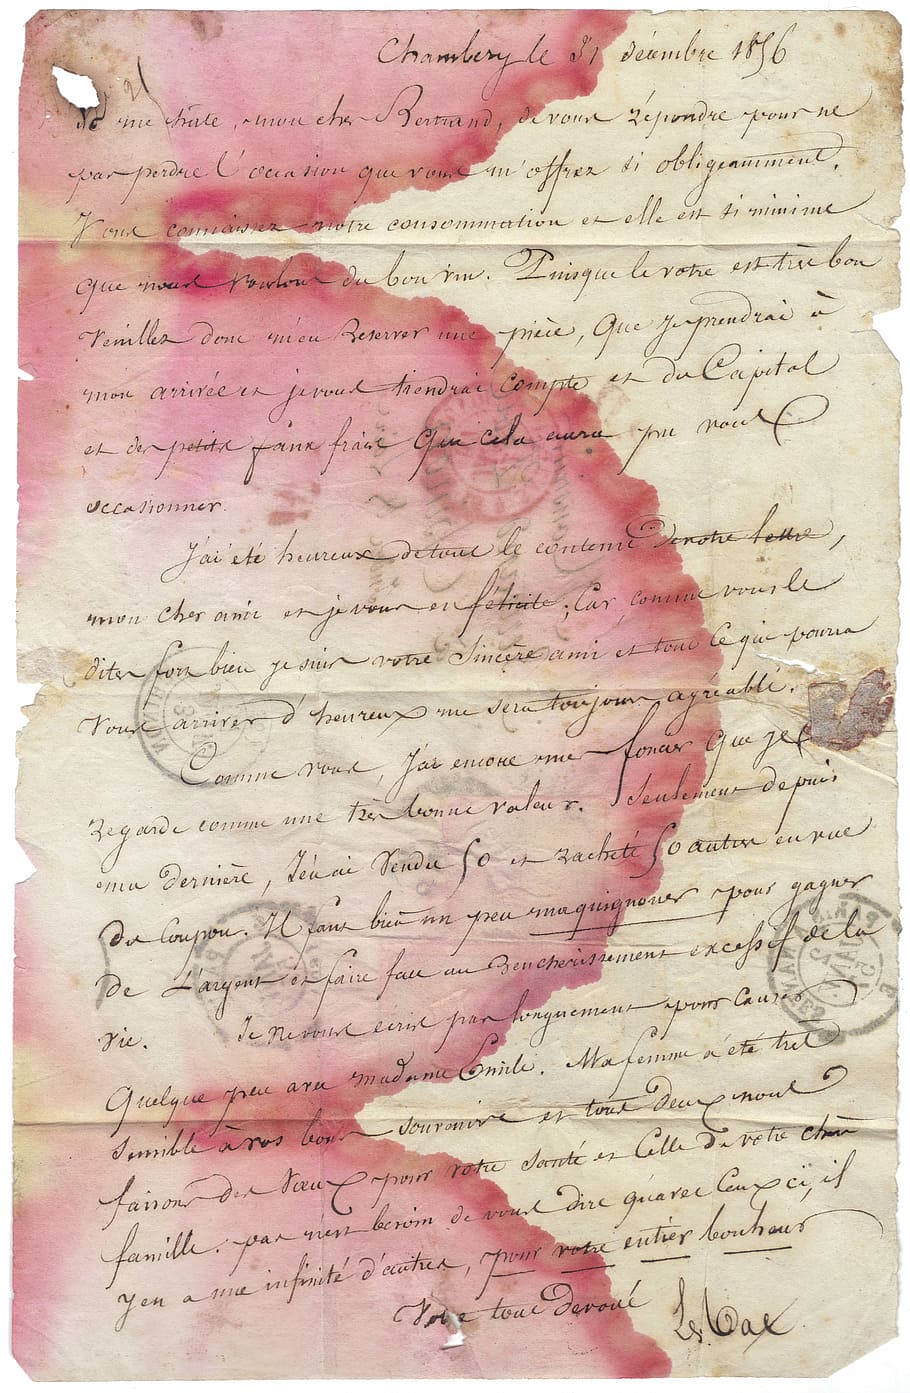 Chambery le 31 décembre 1856
me hâte, mon cher Bertrand, de vous répondre pour ne
pas perdre l'occasion que vous m'offrez si obligeamment.
Vous connaissez notre consommation et elle est si minime
que nous voulons du bon vin. Puisque le votre est très bon
Veuillez donc m'en Reserver une pièce, que je prendrai à
mon arrivée et je vous tiendrai compte et du Capital
et des petits faux frais que cela aura pu vous
occasionner.
J'ai été heureux de tout le contenu de votre lettre,
mon cher ami et je vous en félicite ; Car, comme vous le
dites fort bien je suis votre Sincère ami et tout ce qui pourra
Vous arriver d'heureux me sera toujours agréable.
Comme vous, J'ai encore mes fonciers que je
Regarde comme une très bonne valeur. Seulement depuis
ma dernière, J'en ai Vendu 50 et racheté 50 autres en vue
du Coupon. Il faut bien un peu maquignoner pour gagner
de L'argent et faire face au Renchérissement excessif de la
vie. Je ne vous écris pas longuement pour causer
Quelque peu avec madame Emilie. Ma femme a été très
Sensible à vos bons souvenirs et tous deux nous
faisons des Vœux pour votre santé et Celle de votre chère
famille. pas n'est besoin de vous dire qu'avec Ceux ci, il
y en a une infinité d'autres, pour votre entier bonheur
Votre tout dévoué